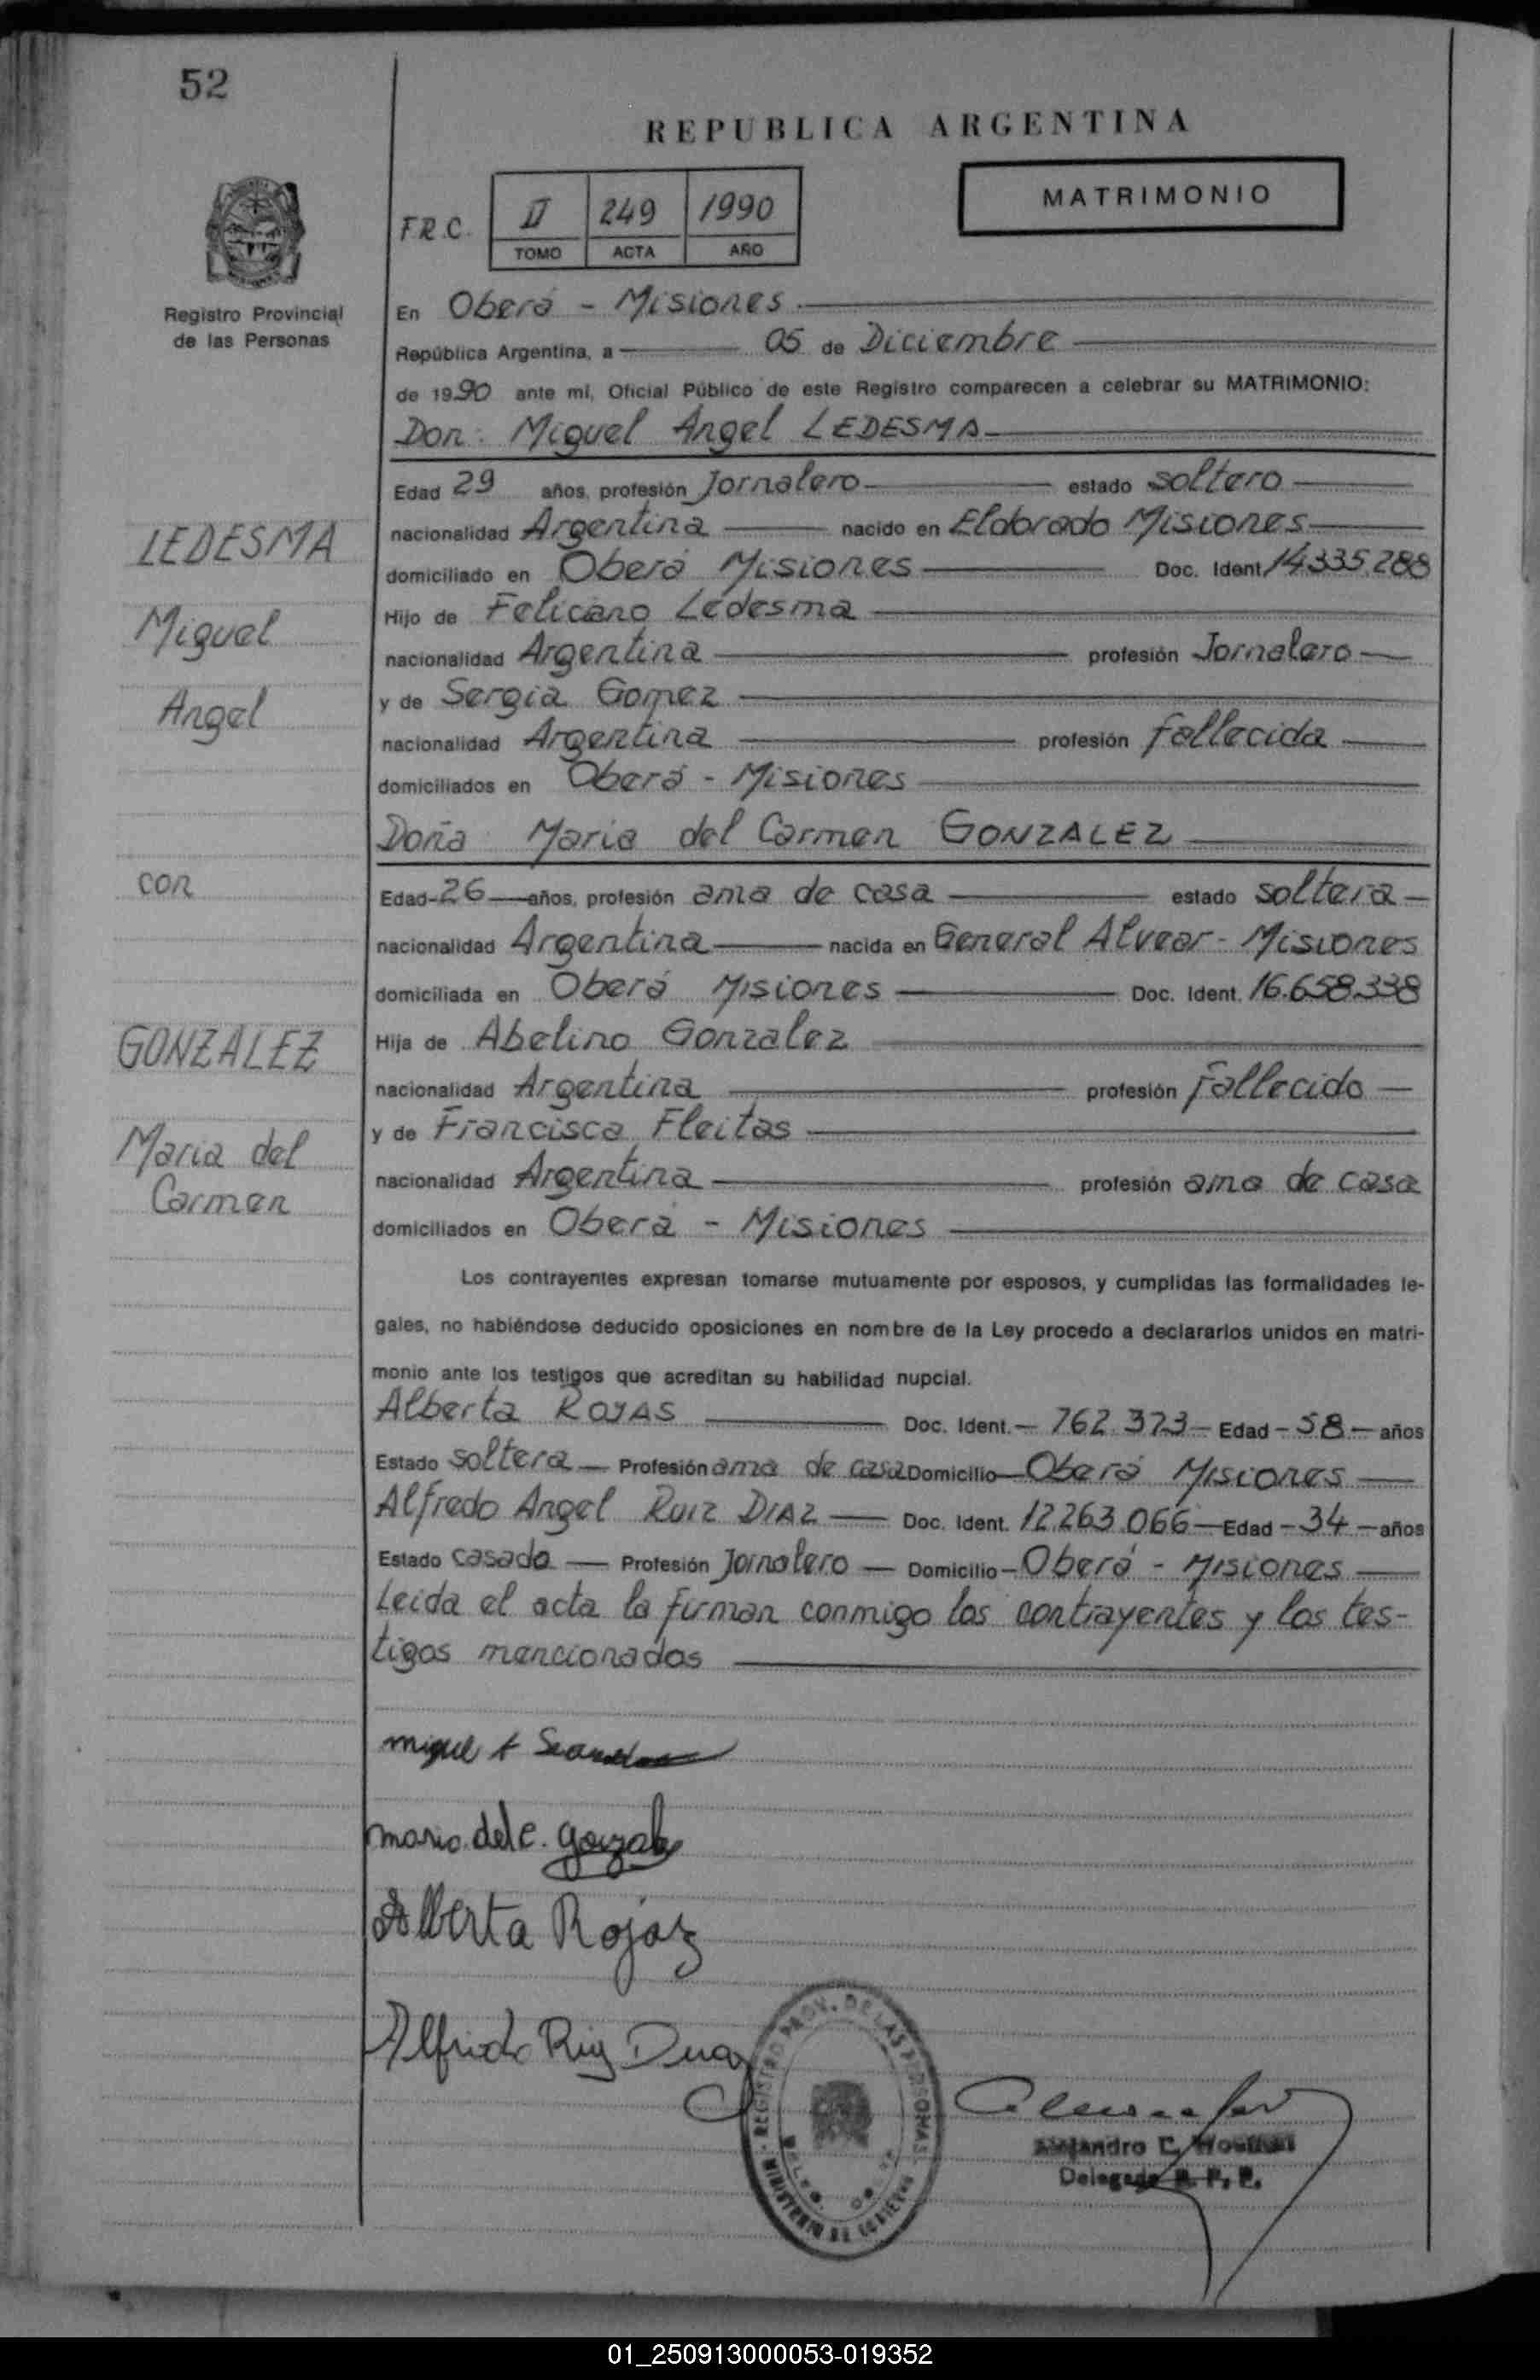 52
REPUBLICA ARGENTINA
MATRIMONIO
F.R.C. II 249 1990
TOMO ACTA AÑO
Registro Provincial
de las Personas
En Oberá - Misiones
República Argentina, a 05 de Diciembre
de 1990 ante mí, Oficial Público de este Registro comparecen a celebrar su MATRIMONIO:
Don: Miguel Angel LEDESMA
Edad 29 años, profesión Jornalero estado soltero
nacionalidad Argentina nacido en Eldorado Misiones
domiciliado en Oberá Misiones Doc. Ident. 14.335.288
Hijo de Feliciano Ledesma
nacionalidad Argentina profesión Jornalero
y de Sergia Gomez
nacionalidad Argentina profesión fallecida
domiciliados en Oberá - Misiones
Doña Maria del Carmen GONZALEZ
Edad-26-años, profesión ama de casa estado soltera
nacionalidad Argentina nacida en General Alvear - Misiones
domiciliada en Oberá Misiones Doc. Ident. 16.658.338
Hija de Abelino Gonzalez
nacionalidad Argentina profesión Fallecido
y de Francisca Fleitas
nacionalidad Argentina profesión ama de casa
domiciliados en Oberá - Misiones
LEDESMA
Miguel
Angel
con
GONZALEZ
Maria del
Carmen
Los contrayentes expresan tomarse mutuamente por esposos, y cumplidas las formalidades le-
gales, no habiéndose deducido oposiciones en nombre de la Ley procedo a declararlos unidos en matri-
monio ante los testigos que acreditan su habilidad nupcial.
Alberta ROJAS Doc. Ident. - 762.373 - Edad - 58 - años
Estado soltera - Profesión ama de casa Domicilio - Oberá Misiones
Alfredo Angel Ruiz DIAZ - Doc. Ident. 12.263.066 - Edad - 34 - años
Estado casado - Profesión Jornalero - Domicilio - Oberá - Misiones
Leida el acta la firman conmigo los contrayentes y los tes-
tigos mencionados
miguel A
maria del c. gonzalez
Alberta Rojaz
Alfredo Ruiz Diaz
REGISTRO PROV. DE LAS PERSONAS
MINISTERIO DE GOBIERNO
Alejandro C.
Delegado R. P. P.
01_250913000053-019352